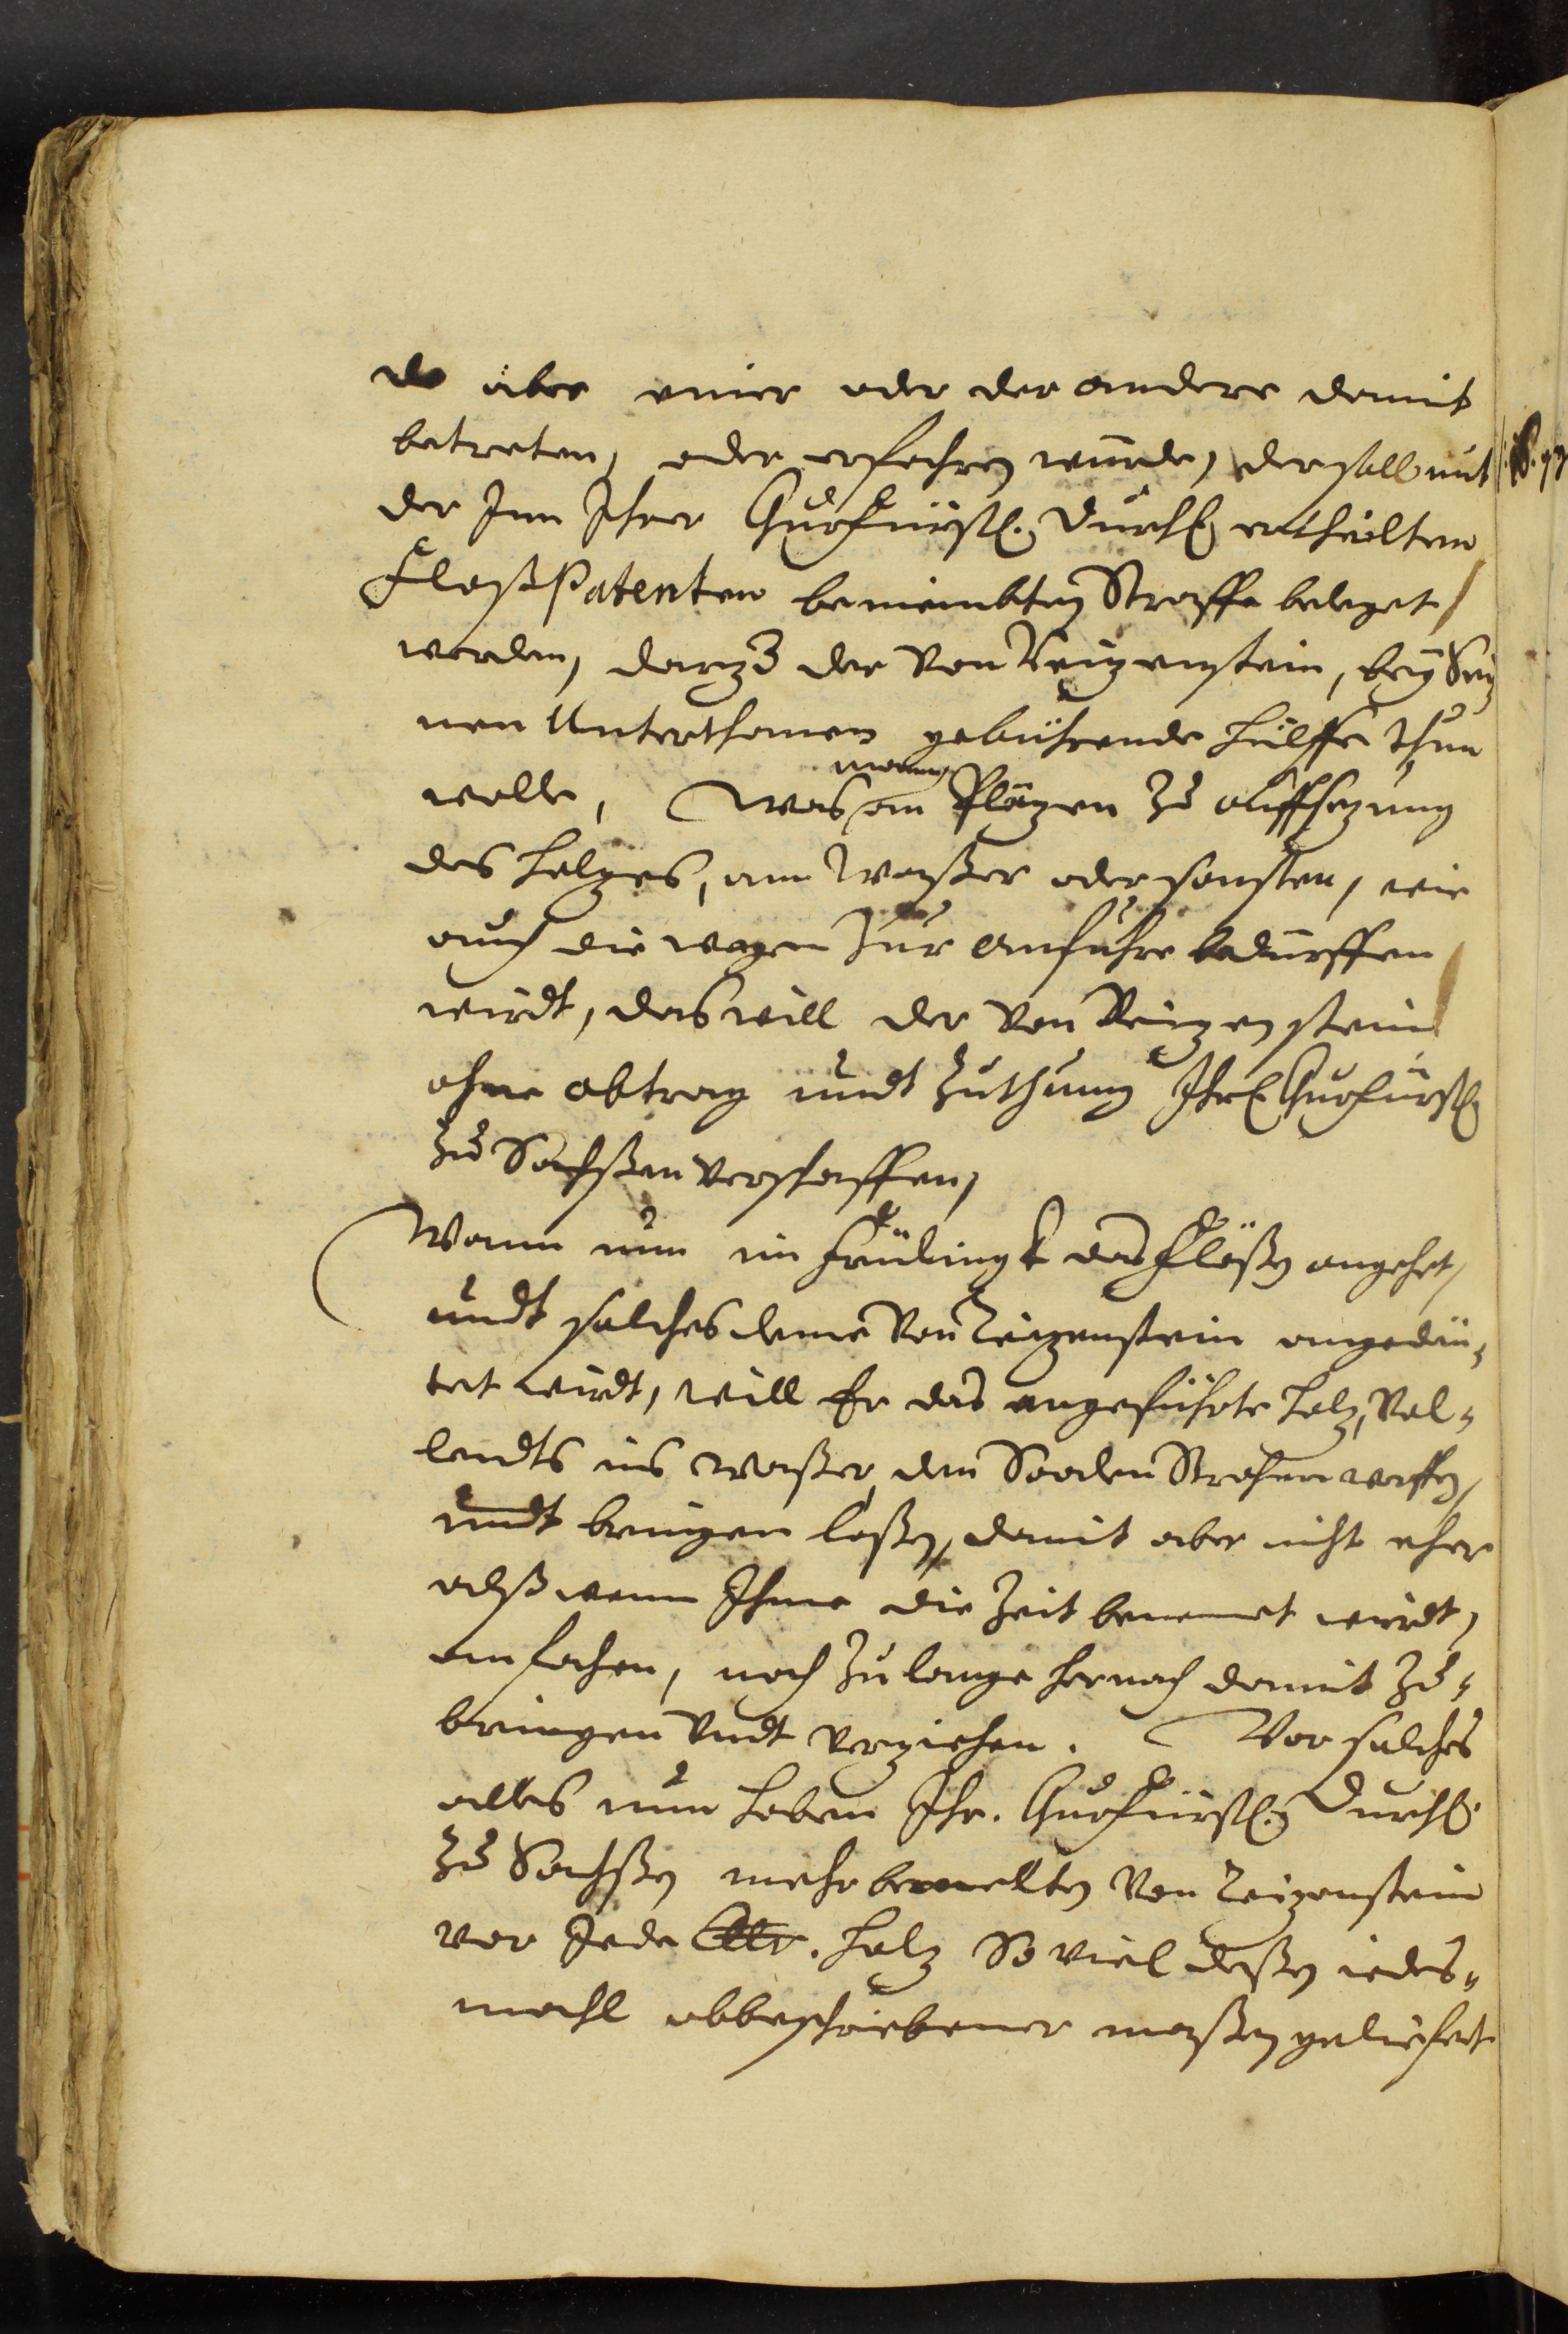 do aber einer oder der andere damit
betreten, oder erfahren würde, der soll mit
der Inn Ihrer Churfürstl. Durchl. ertheilten
FloßPatenten beniembten Straffe beleget
werden, darzu der von Reizenstein, bey Sei,
nen Unterthanen gebührende hülffe thun
wolle, Was an Pläzen zu auffsezung
des holzes, am Waßer oder sonsten, wie
auch die wegen zur anfuhre bedürffen
wirdt, das will der von Reizenstein
ohne abtrag undt zuthuung Ihrl. Churfürstl.
zu Sachßen verschaffen,
Wann nun im Frülingk das Flößen angehet,
undt solches deme von Reizenstein angedeü,
tet wirdt, will Er das angeführte holz, vol-
lendts ins waßer, den Strohm werffen,
undt bringen laßen, damit aber nicht eher
alß wenn Ihme die Zeit benennet wirdt,
anfahen, noch zu lange hernach damit zu-
bringen undt verziehen. Vor solches
alles nun haben Ihr. Churfürstl. Durchl.
zu Sachßen mehr bemelten von Reizenstein
vor Jede Clttr. holz So viel deßen iedes-
mahl obbeschriebener maßen geliefert